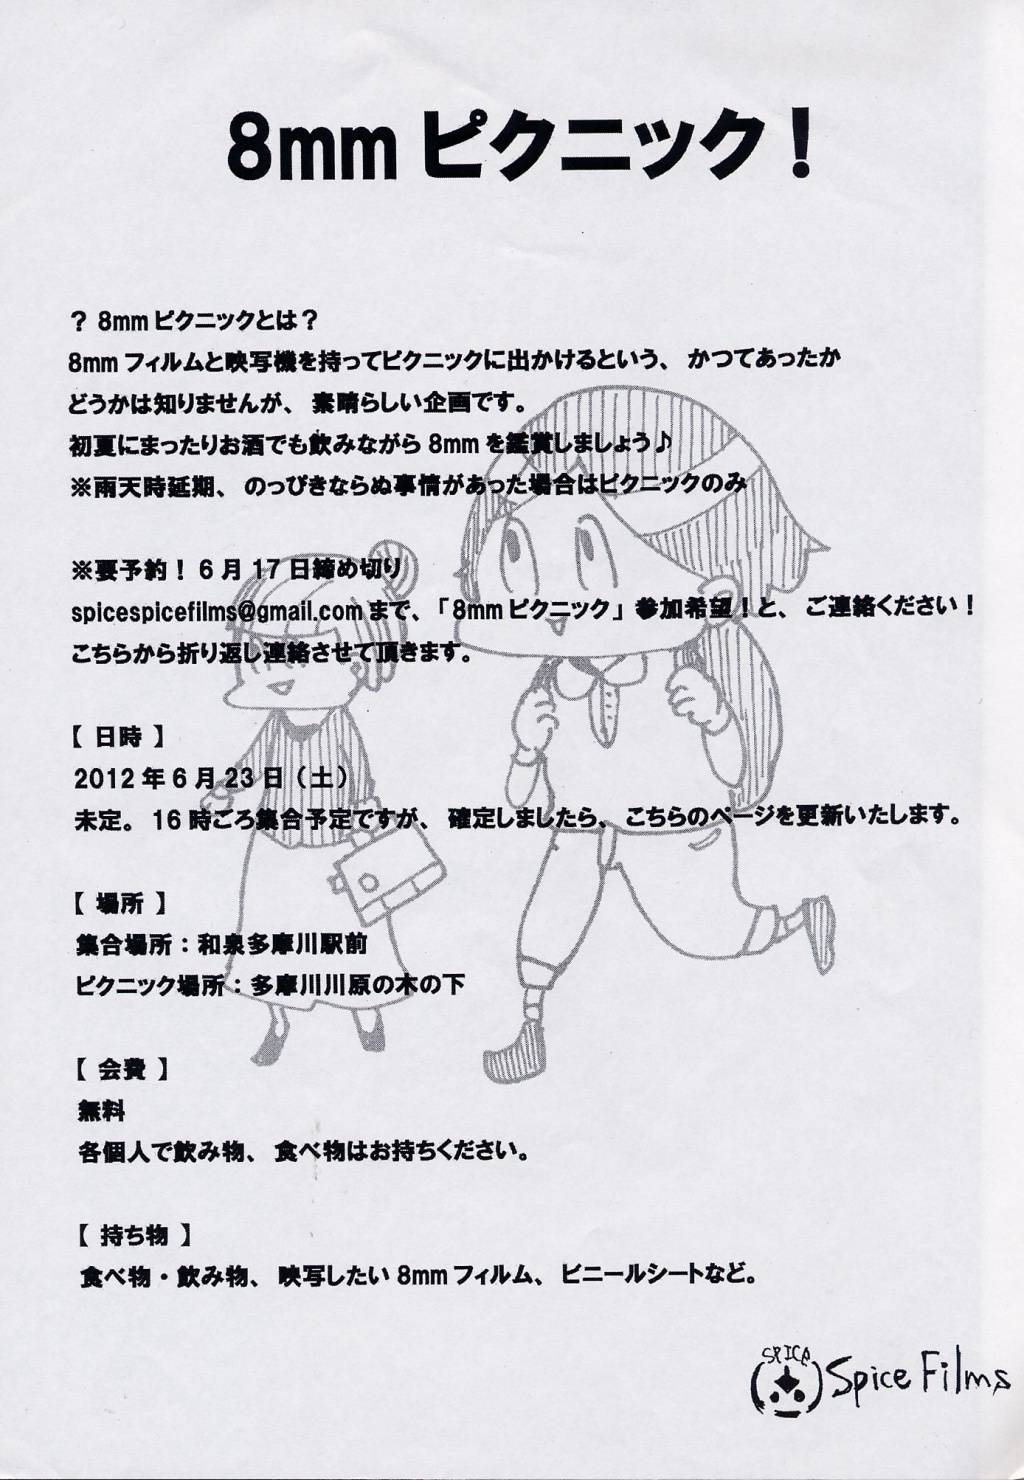 8mm ピクニック！
？ 8mm ピクニックとは？
8mm フィルムと映写機を持ってピクニックに出かけるという、かつてあったか
どうかは知りませんが、素晴らしい企画です。
初夏にまったりお酒でも飲みながら 8mm を鑑賞しましょう♪
※雨天時延期、のっぴきならぬ事情があった場合はピクニックのみ
※要予約！ 6 月 17 日締め切り
spicespicefilms@gmail.com まで、「8mm ピクニック」参加希望！と、ご連絡ください！
こちらから折り返し連絡させて頂きます。
【 日時 】
2012 年 6 月 23 日（土）
未定。16 時ごろ集合予定ですが、確定しましたら、こちらのページを更新いたします。
【 場所 】
集合場所：和泉多摩川駅前
ピクニック場所：多摩川川原の木の下
【 会費 】
無料
各個人で飲み物、食べ物はお持ちください。
【 持ち物 】
食べ物・飲み物、映写したい 8mm フィルム、ビニールシートなど。
SPICE
Spice Films